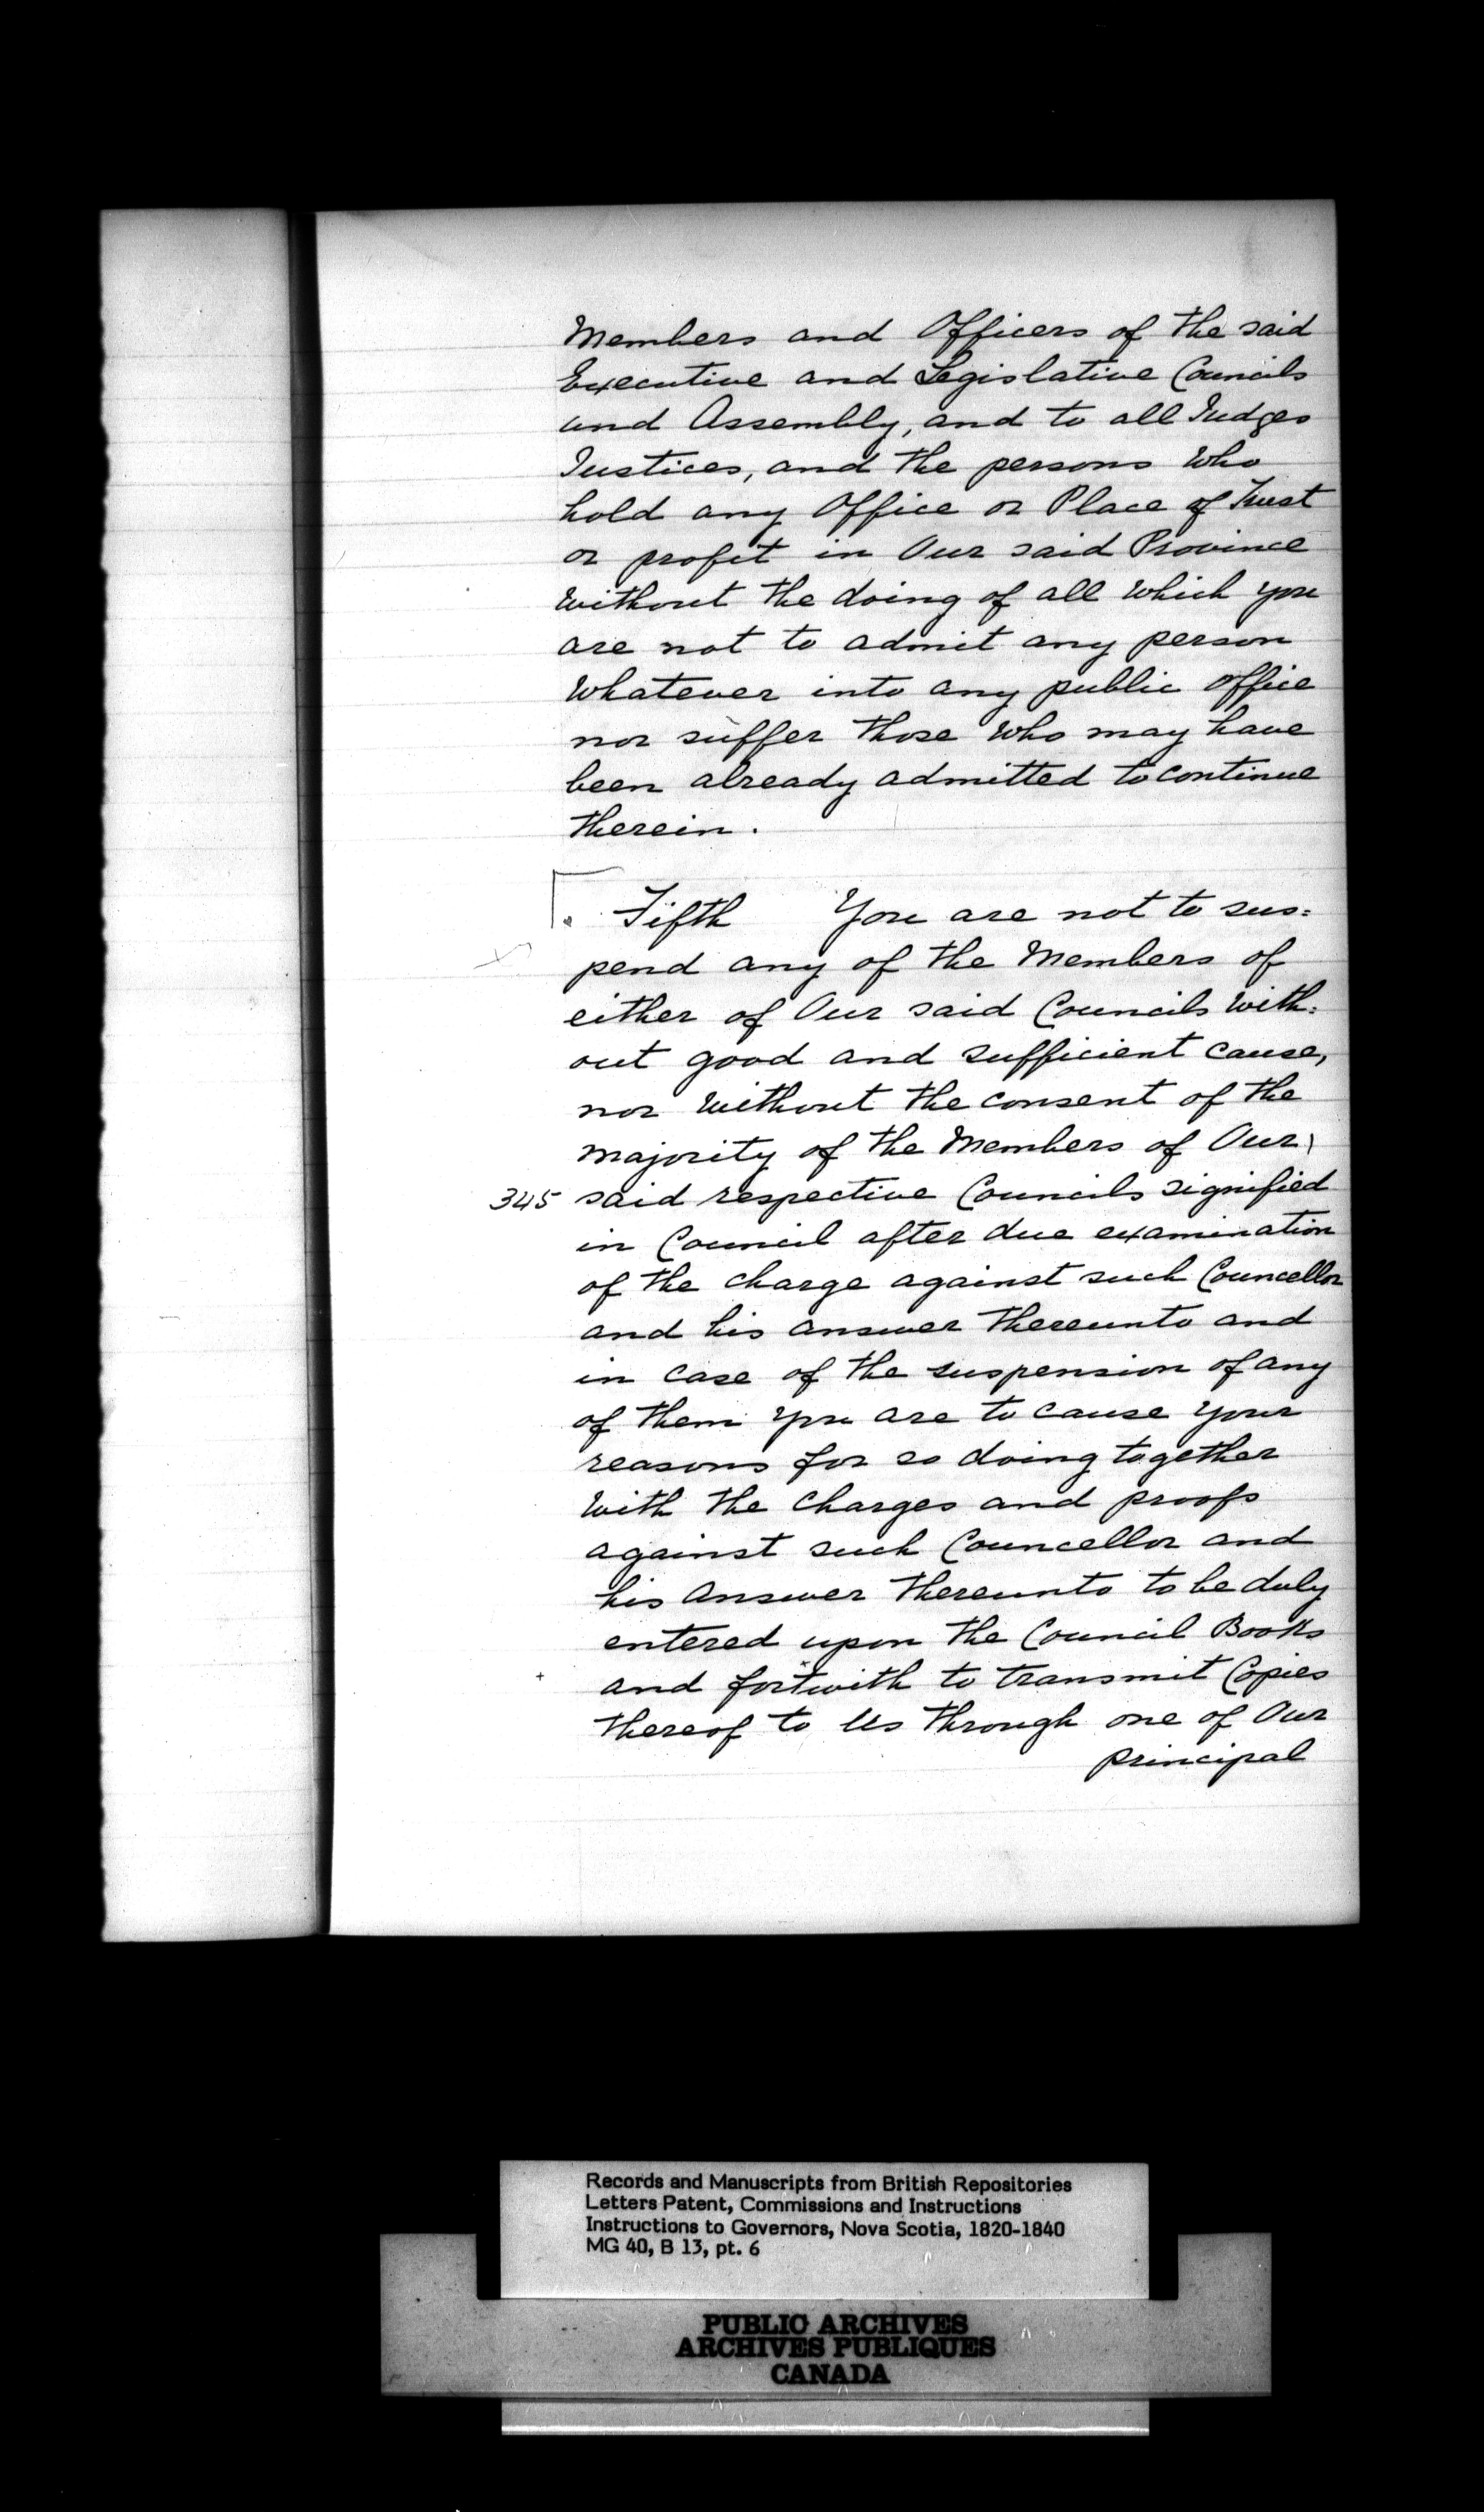 Members and Officers of the said
Executive and Legislative Councils
and Assembly, and to all Judges
Justices, and the persons who
hold any Office or Place of Trust
or profit in Our said Province
without the doing of all which you
are not to admit any person
whatever into any public office
nor suffer those who may have
been already admitted to continue
therein.
Fifth You are not to sus=
pend any of the Members of
either of Our said Councils with=
out good and sufficient cause,
nor without the consent of the
majority of the Members of Our
345 said respective Councils signified
in Council after due examination
of the charge against such Councellor
and his answer thereunto and
in case of the suspension of any
of them you are to cause your
reasons for so doing together
with the charges and proofs
against such Councellor and
his answer thereunto to be duly
entered upon the Council Books
+ and fortwith to transmit Copies
thereof to Us through one of Our
principal
Records and Manuscripts from British Repositories
Letters Patent, Commissions and Instructions
Instructions to Governors, Nova Scotia, 1820-1840
MG 40, B 13, pt. 6
PUBLIC ARCHIVES
ARCHIVES PUBLIQUES
CANADA